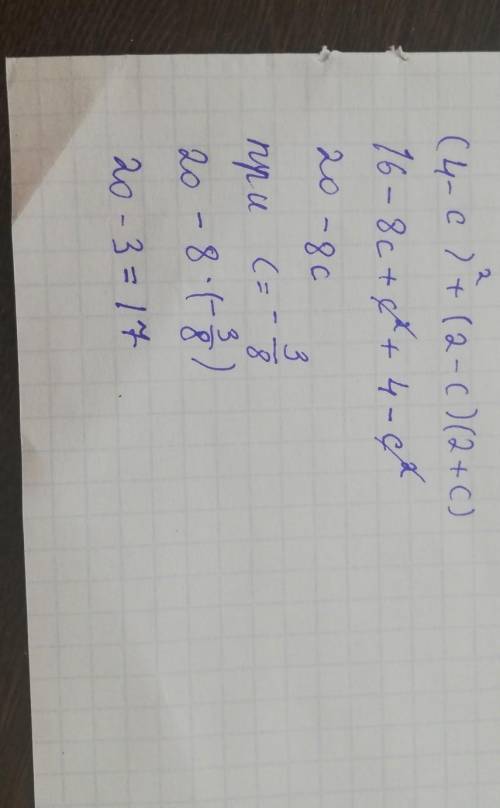 (4-c)² + (2-c)(2+c)
16 - 8c + c² + 4 - c²
20 - 8c
при c = -3/8
20 - 8 · (-3/8)
20 - 3 = 17